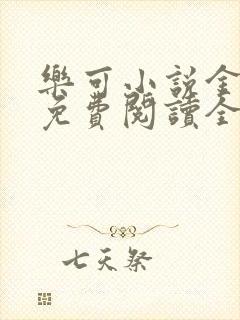 樂可小說全
免費閱讀全
七天祭